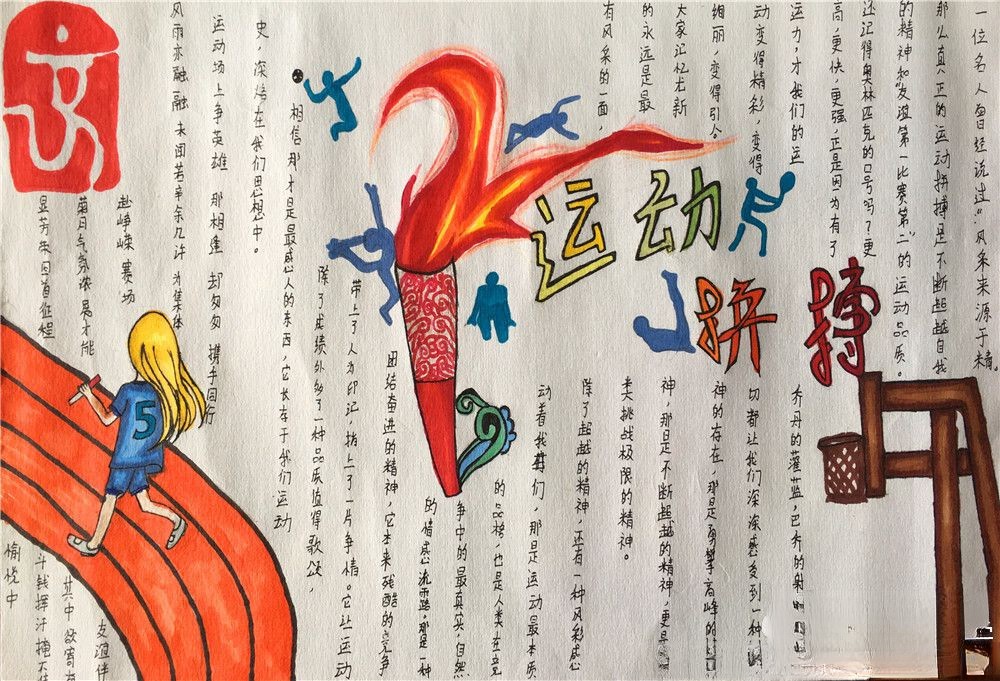 一位名人曾经说过：风采来源于精。
那么真正的运动拼搏是不断超越自我
的精神和“友谊第一比赛第二”的运动品质。
还记得奥林匹克的口号吗？更
高，更快，更强，正是因为有了
运力，才我们的运
动变得精彩，变得
绚丽，变得引人
大家记忆尤新
的永远是最
有风采的一面，
运动
拼搏
乔丹的灌蓝，巴乔的射
切都让我们深深感受到一种
神的存在，那是勇攀高峰的
神，那是不断超越的精神，更是
类挑战极限的精神。
除了超越的精神，还有一种风彩感
动着我们，那是运动最本质
的品格，也是人类在竞
争中的最真实，自然
的情感流露，那是一种
团结奋进的精神，它本来残酷的竞争
带上了人为印记，抬上了一片争情。它让运动
除了成绩外多了一种品质值得歌颂，
相信那才是最感人的东西，它长存于我们运动
史，深烙在我们思想中。
运动场上争英雄 那相逢 却匆匆 携手同行
风雨亦融融 未困苦辛余几许 为集体
赴峥嵘 赛场
气氛浓 是才能
征程
5
友谊伴
其中 欲寄
斗钱挥汗
愉悦中